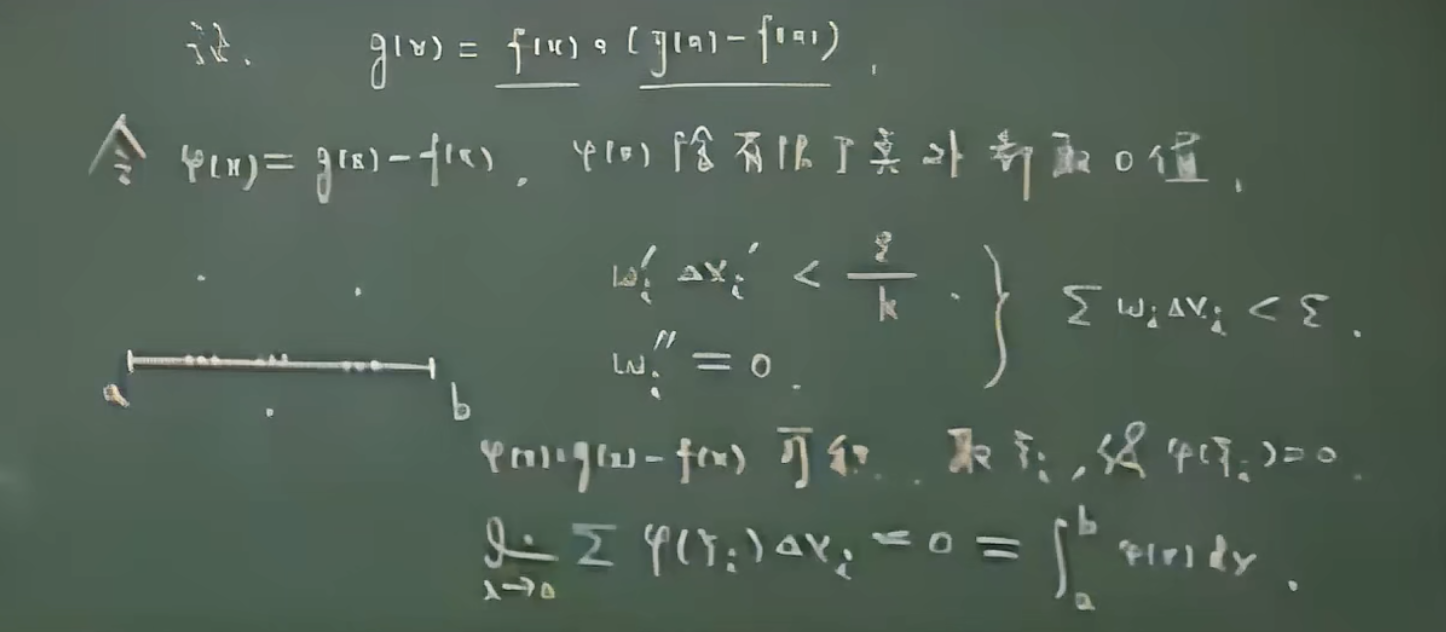 证. g(x) = f(x) + (g(x) - f(x)).
令 φ(x) = g(x) - f(x). φ(x) 除有限个点外都取 0 值.
ω_i' Δx_i' < ε/k.
ω_i'' = 0.
} Σ ω_i Δx_i < ε.
a b
φ(x) = g(x) - f(x) 可积. 取 ξ_i, 使 φ(ξ_i) = 0.
lim_{λ→0} Σ φ(ξ_i) Δx_i = 0 = ∫_a^b φ(x) dx.